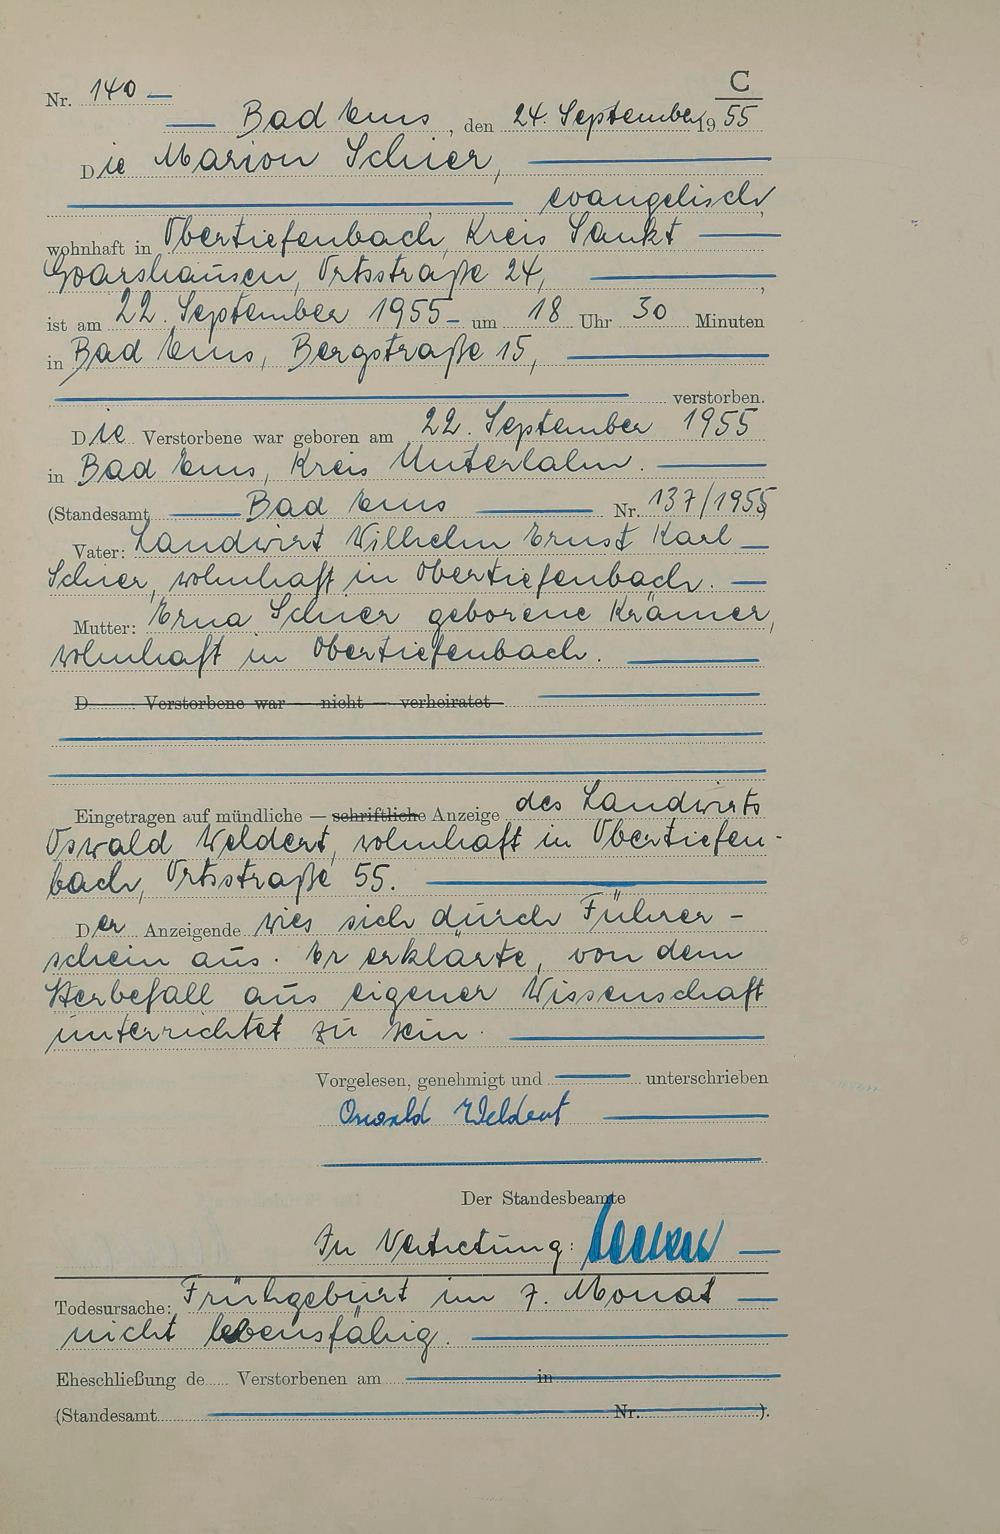 C
Nr. 140
Bad Ems, den 24. September 1955
Die Marion Schier,
evangelisch,
wohnhaft in Obertiefenbach, Kreis Sankt
Goarshausen, Ortsstraße 24,
ist am 22. September 1955 um 18 Uhr 30 Minuten
in Bad Ems, Bergstraße 15,
verstorben.
Die Verstorbene war geboren am 22. September 1955
in Bad Ems, Kreis Unterlahn.
(Standesamt Bad Ems Nr. 137/1955)
Vater: Landwirt Wilhelm Ernst Karl
Schier, wohnhaft in Obertiefenbach.
Mutter: Erna Schier geborene Krämer,
wohnhaft in Obertiefenbach.
D Verstorbene war — nicht — verheiratet
Eingetragen auf mündliche — schriftliche Anzeige des Landwirts
Oswald Weldert, wohnhaft in Obertiefen-
bach, Ortsstraße 55.
Der Anzeigende wies sich durch Führer-
schein aus. Er erklärte, von dem
Sterbefall aus eigener Wissenschaft
unterrichtet zu sein.
Vorgelesen, genehmigt und unterschrieben
Oswald Weldert
Der Standesbeamte
In Vertretung:
Todesursache: Frühgeburt im 7. Monat
nicht lebensfähig.
Eheschließung de Verstorbenen am in
(Standesamt Nr. ).